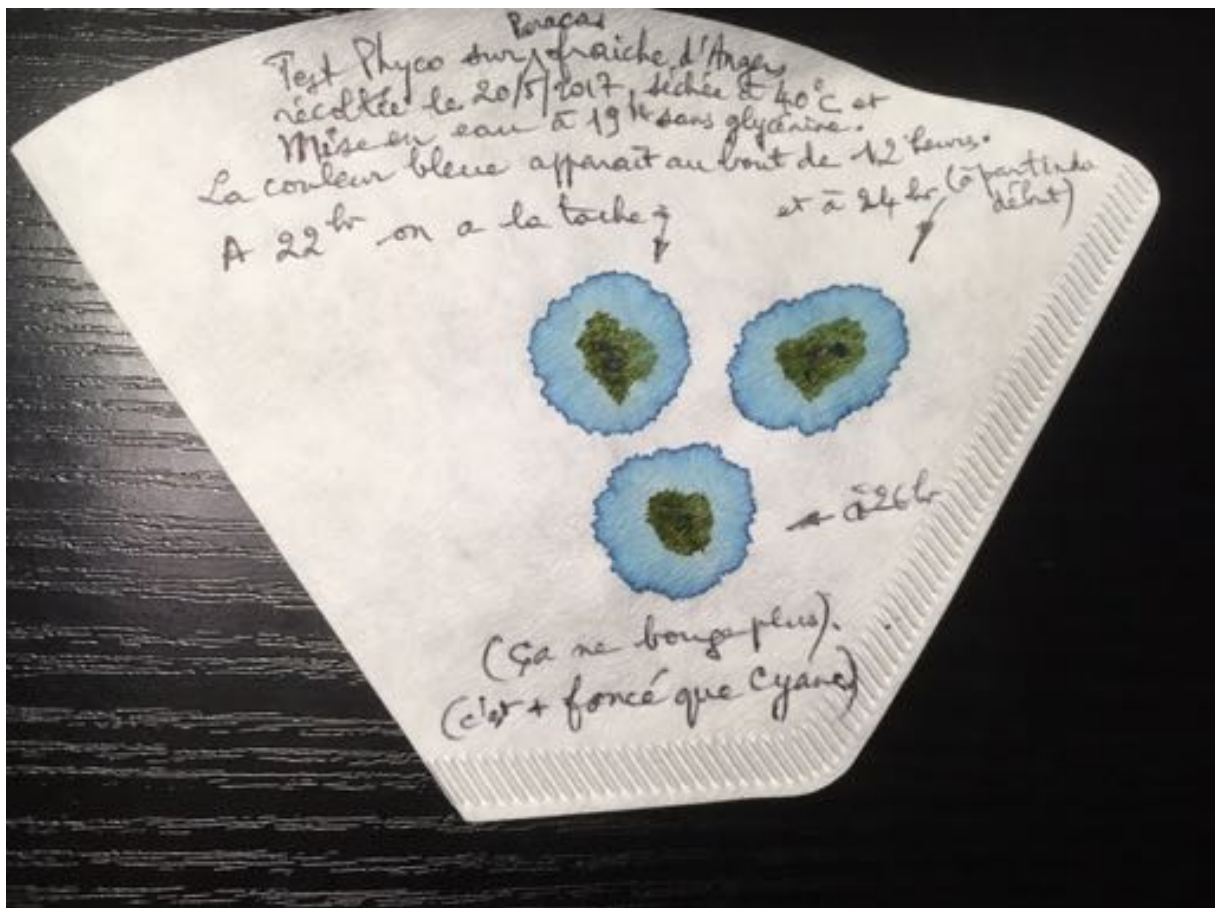 Paracas
Test Phyco sur fraiche d'Angers
récoltée le 20/5/2017, séchée à 40°C et
Mise en eau à 19H sans glycérine.
La couleur bleue apparait au bout de 12 heures.
A 22hr on a la tache
et à 24 hr (à partir du
début)
à 26 hr
(ça ne bouge plus).
(c'est + foncé que Cyane)